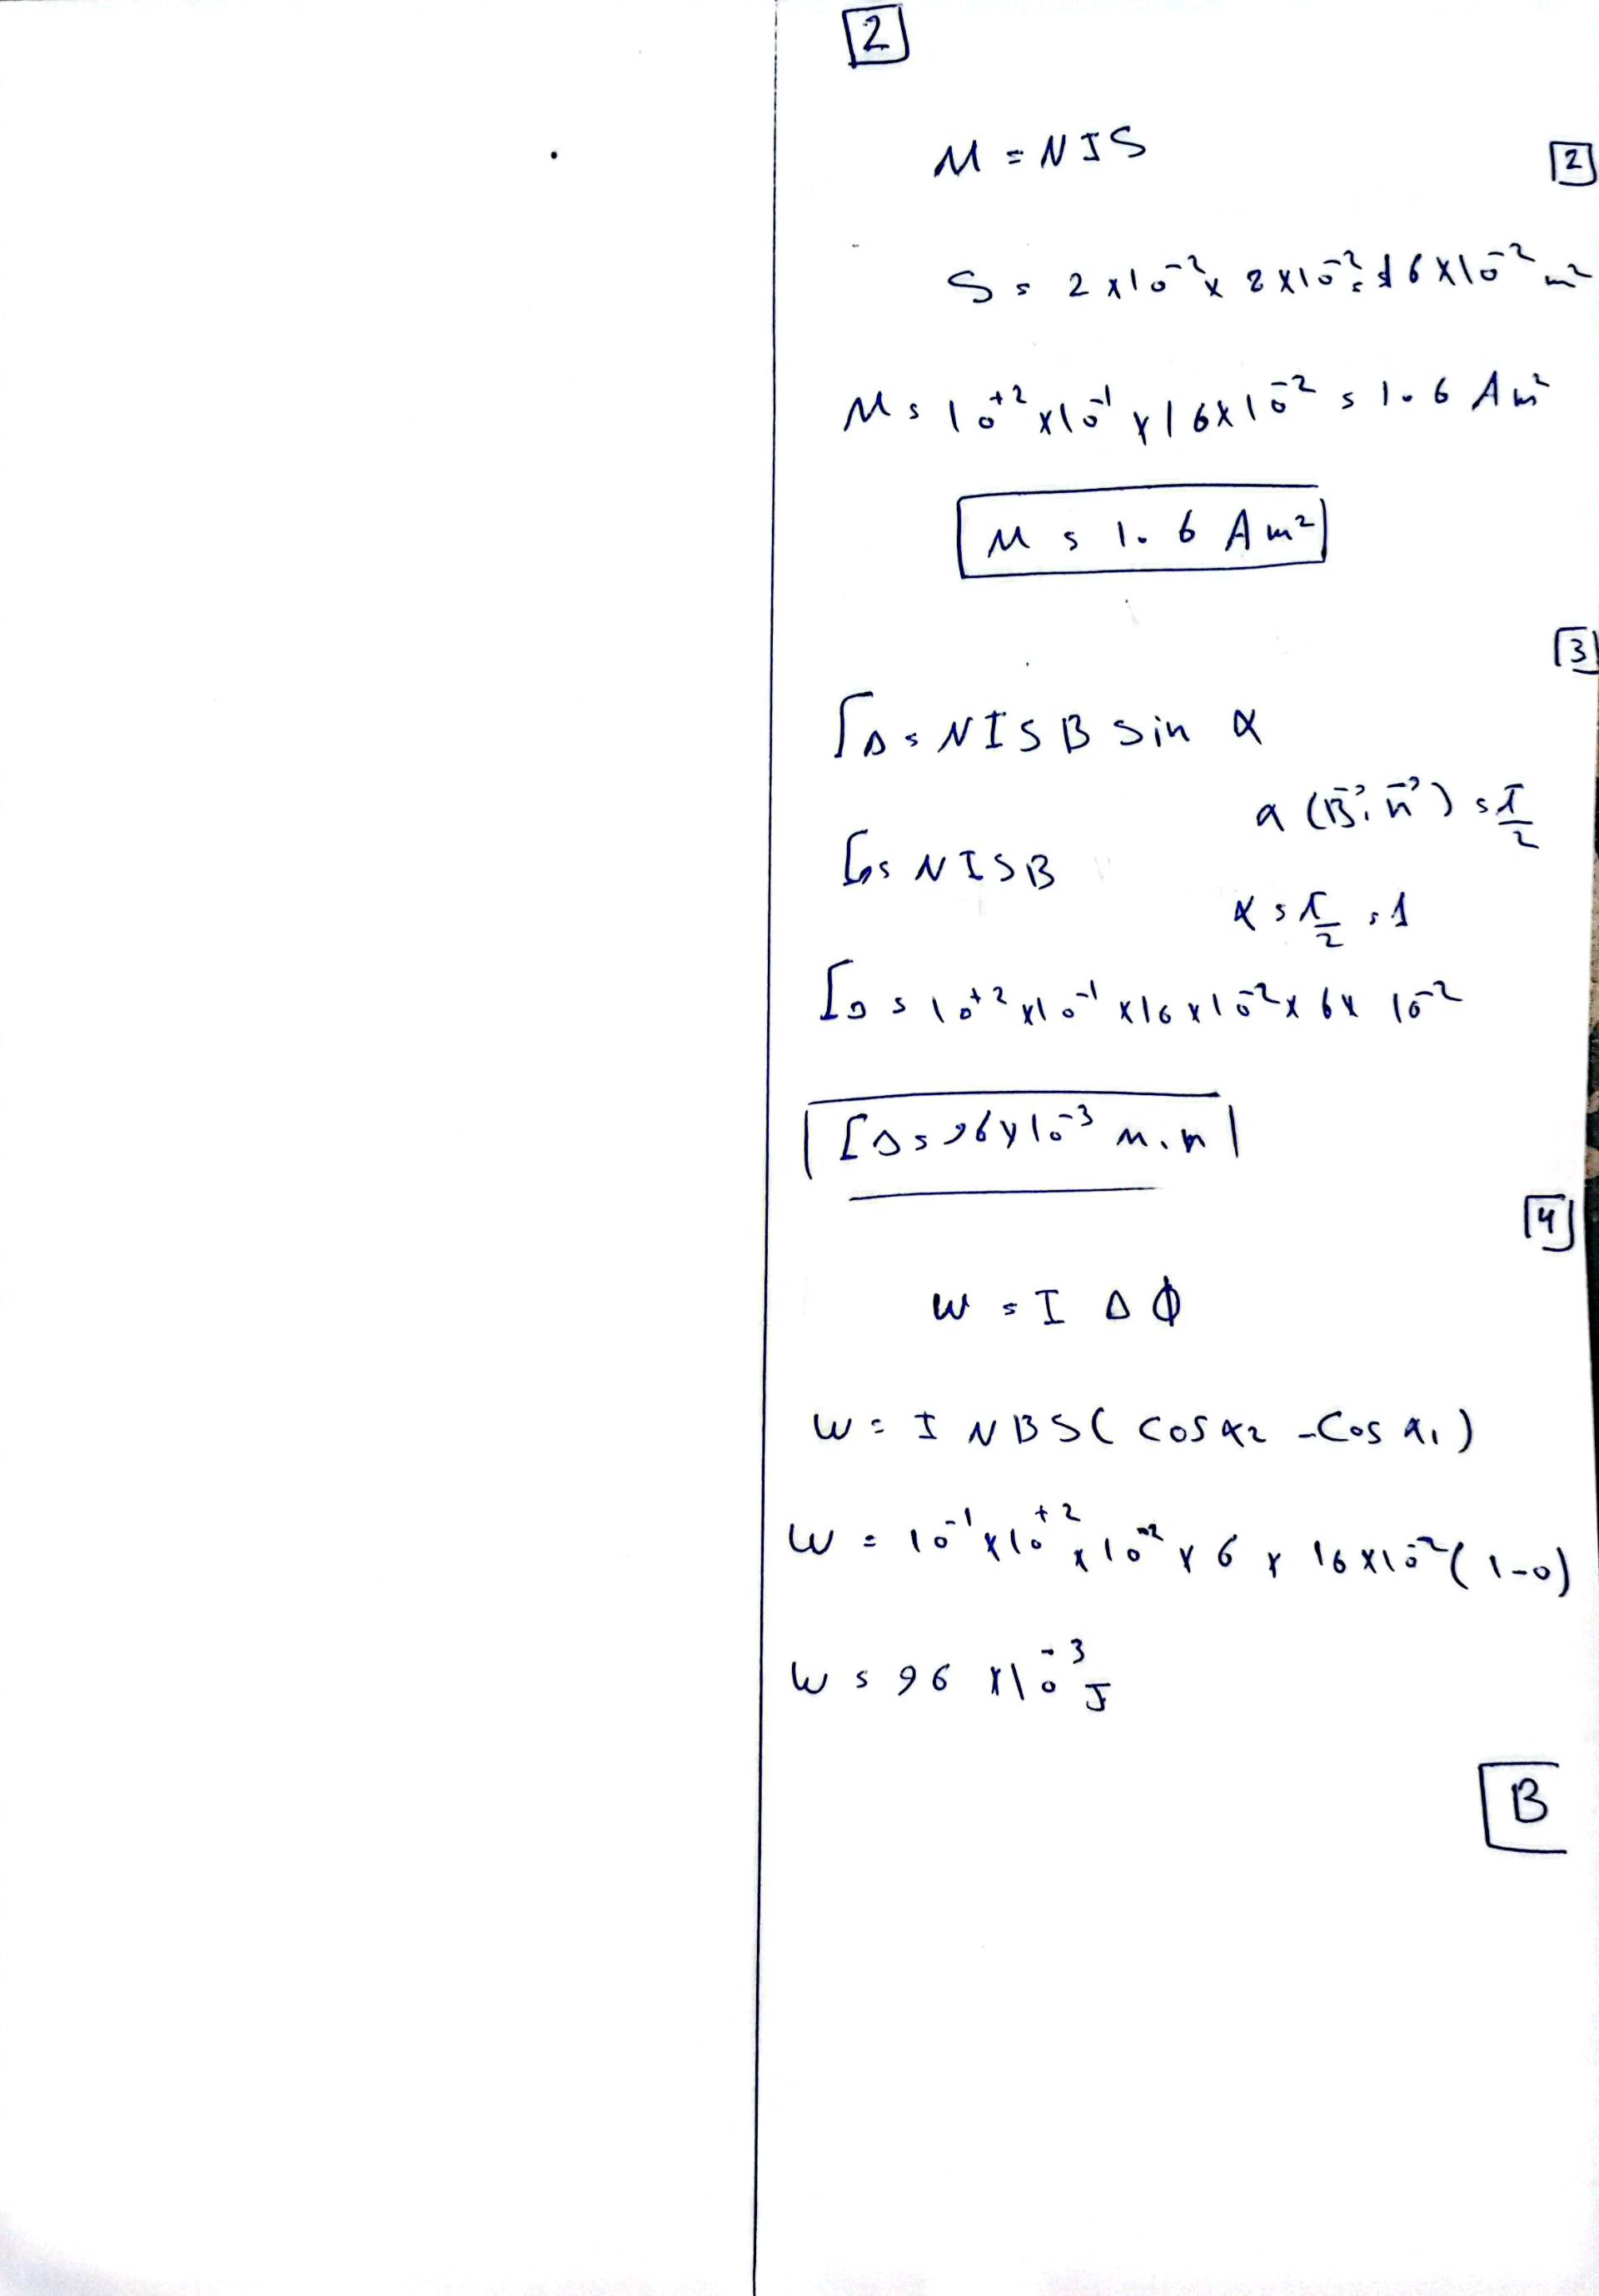 2
M = NIS
2
S = 2 x 10⁻² x 8 x 10⁻² = 16 x 10⁻² m²
M = 10⁺² x 10⁻¹ x 16 x 10⁻² = 1.6 A m²
M = 1.6 A m²
3
Γ∆ = N I S B sin α
α (B⃗, n⃗) = π/2
Γ∆ = N I S B
α = π/2 = 1
Γ∆ = 10⁺² x 10⁻¹ x 16 x 10⁻² x 6 x 10⁻²
Γ∆ = 96 x 10⁻³ m.n
4
W = I ∆ Φ
W = I N B S ( cos α₂ - cos α₁ )
W = 10⁻¹ x 10⁺² x 10⁻² x 6 x 16 x 10⁻² ( 1 - 0 )
W = 96 x 10⁻³ J
B